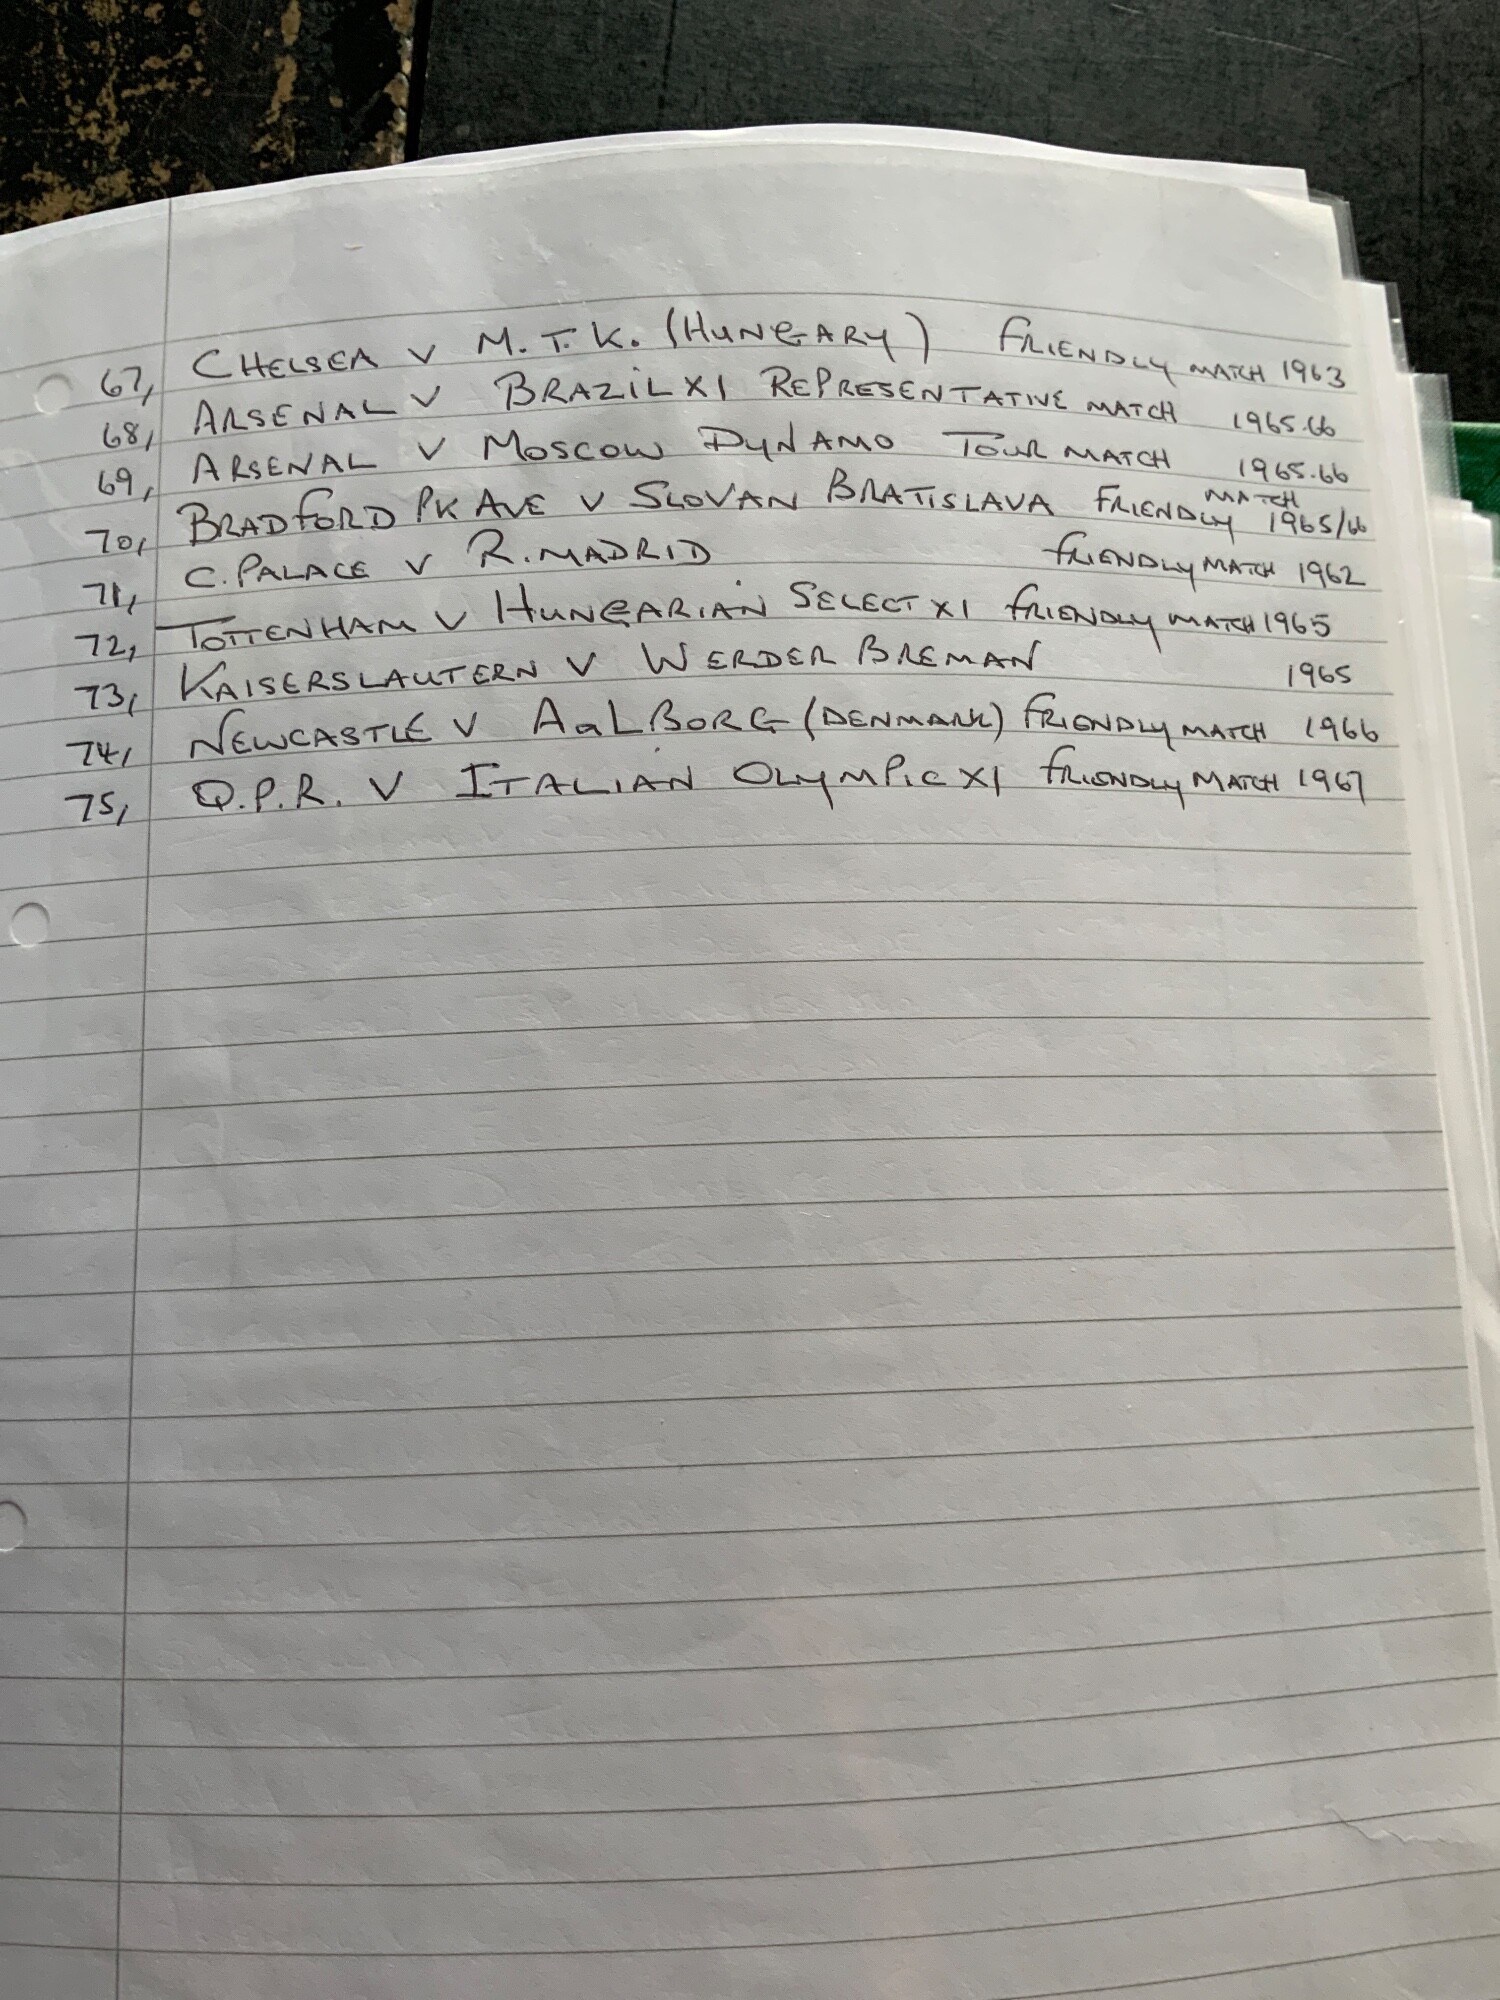 67, CHELSEA V M.T.K. (HUNGARY) FRIENDLY MATCH 1963
68, ARSENAL V BRAZIL XI REPRESENTATIVE MATCH 1965.66
69, ARSENAL V MOSCOW DYNAMO TOUR MATCH 1965.66
70, BRADFORD PK AVE V SLOVAN BRATISLAVA FRIENDLY MATCH 1965/66
71, C. PALACE V R. MADRID FRIENDLY MATCH 1962
72, TOTTENHAM V HUNGARIAN SELECT XI FRIENDLY MATCH 1965
73, KAISERSLAUTERN V WERDER BREMAN 1965
74, NEWCASTLE V AaLBORG (DENMARK) FRIENDLY MATCH 1966
75, Q.P.R. V ITALIAN OLYMPIC XI FRIENDLY MATCH 1967